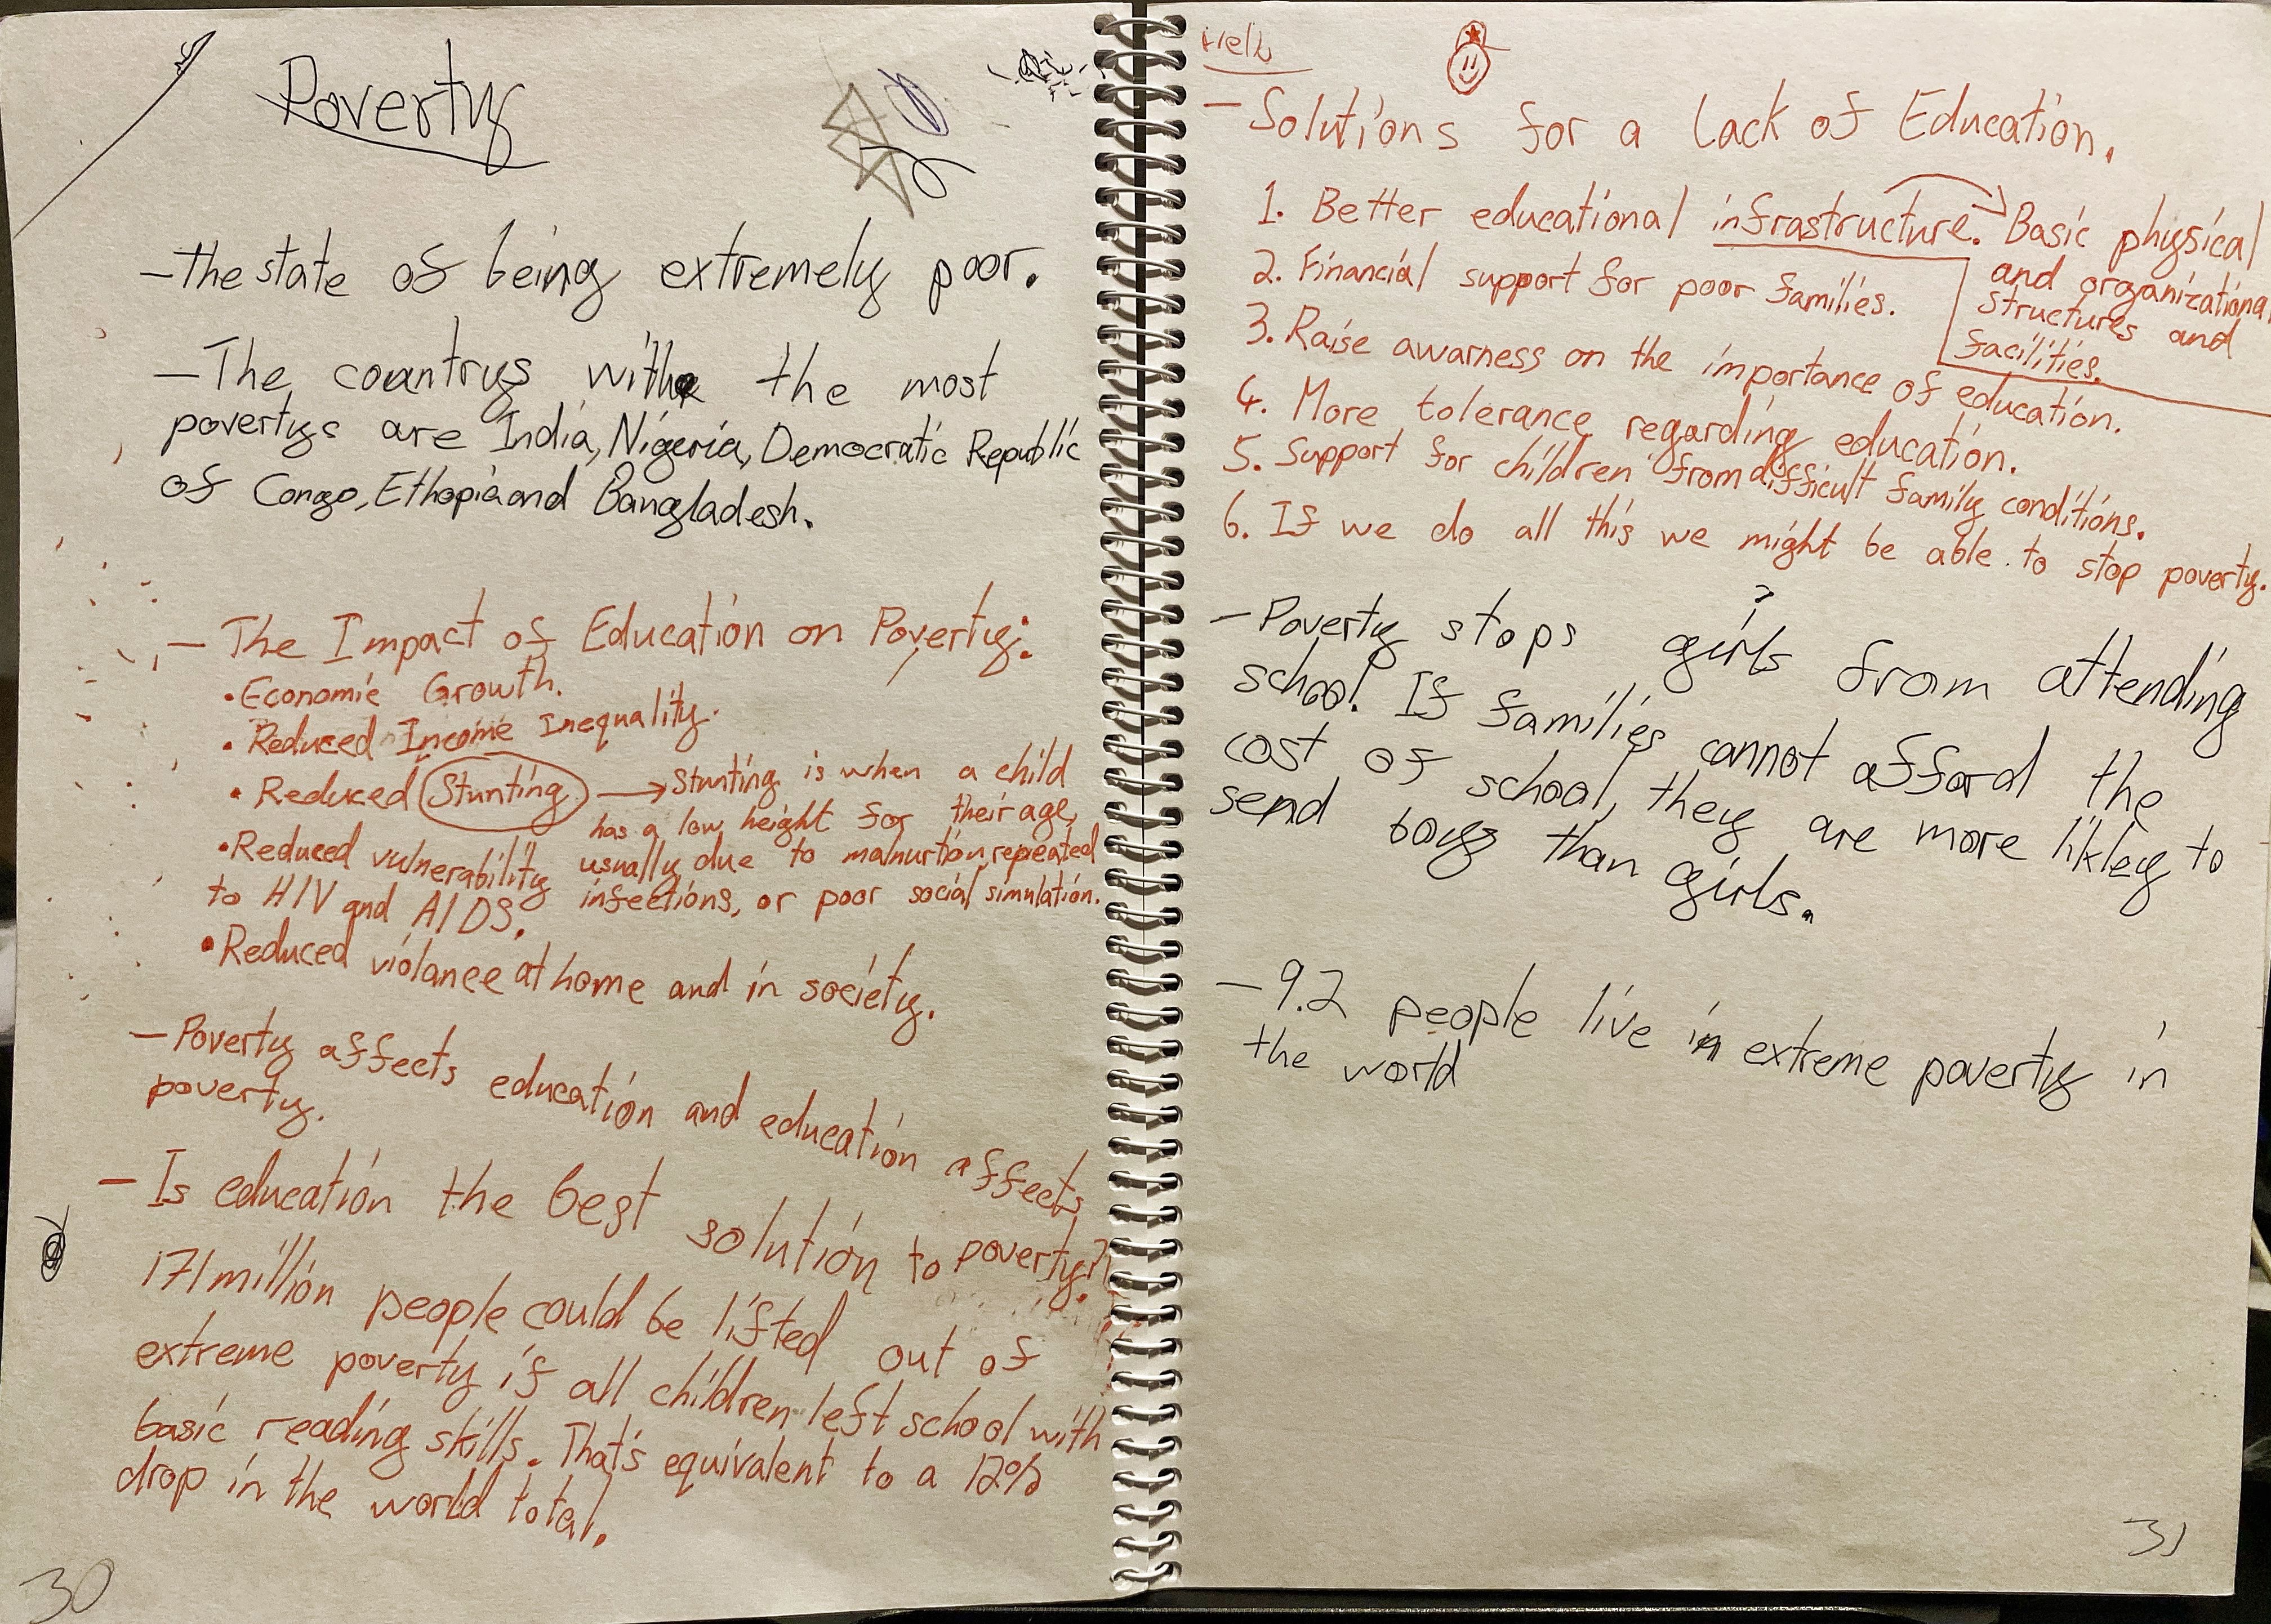 Poverty
-the state of being extremely poor.
-The countrys with the most
povertys are India, Nigeria, Democratic Republic
of Congo, Ethopia and Bangladesh.
- The Impact of Education on Poverty:
•Economic Growth.
• Reduced Income Inequality.
• Reduced Stunting → Stunting is when a child
has a low height for their age,
usually due to malnurtion, repeated
infections, or poor social simulation.
•Reduced vulnerability
to HIV and AIDS.
•Reduced violance at home and in society.
-Poverty affects education and education affects
poverty.
- Is education the best solution to poverty?
171 million people could be lifted out of
extreme poverty if all children left school with
basic reading skills. That's equivalent to a 12%
drop in the world total.
30
- Solutions for a Lack of Education.
1. Better educational infrastructure. → Basic physical
and organizational
structures and
facilities.
2. Financial support for poor families.
3. Raise awarness on the importance of education.
4. More tolerance regarding education.
5. Support for children from difficult family conditions.
6. If we do all this we might be able to stop poverty.
-Poverty stops girls from attending
school. If families cannot afford the
cost of school, they are more likley to
send boys than girls.
-9.2 people live in extreme poverty in
the world
31